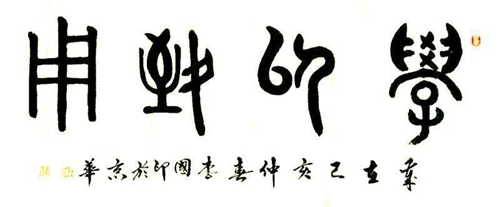 學以致用
歲在己亥仲春李國印於京華